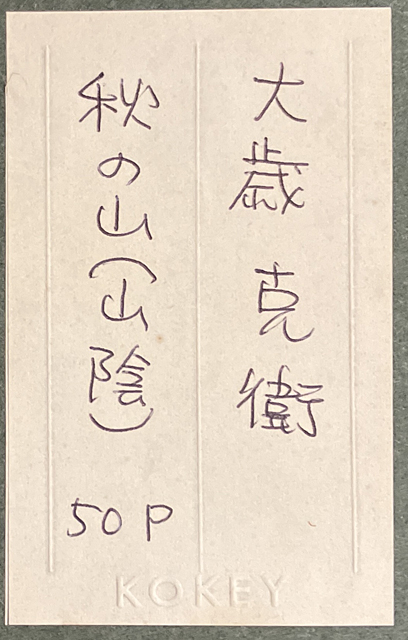 大歳克衛
秋の山(山陰)
50P
KOKEY